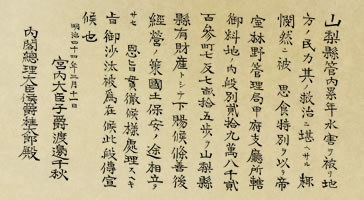 山梨縣管内累年水害ヲ被リ地
方ノ民力其ノ救治ニ堪ヘサル趣
憫然ニ被 思食特別ヲ以テ帝
室林野管理局甲府支廳所轄
御料地ノ内段別貳拾九萬八千貳
百參町七反七畝拾五歩ヲ山梨縣
縣有財産トシテ下賜候條善後
經營ノ策國土保安ノ途相立タ
サセ 恩旨貫徹候樣處理スヘキ
旨御沙汰被爲在候此段傳宣
候也
明治四十四年三月十一日
宮内大臣子爵渡邊千秋
内閣總理大臣侯爵桂太郎殿